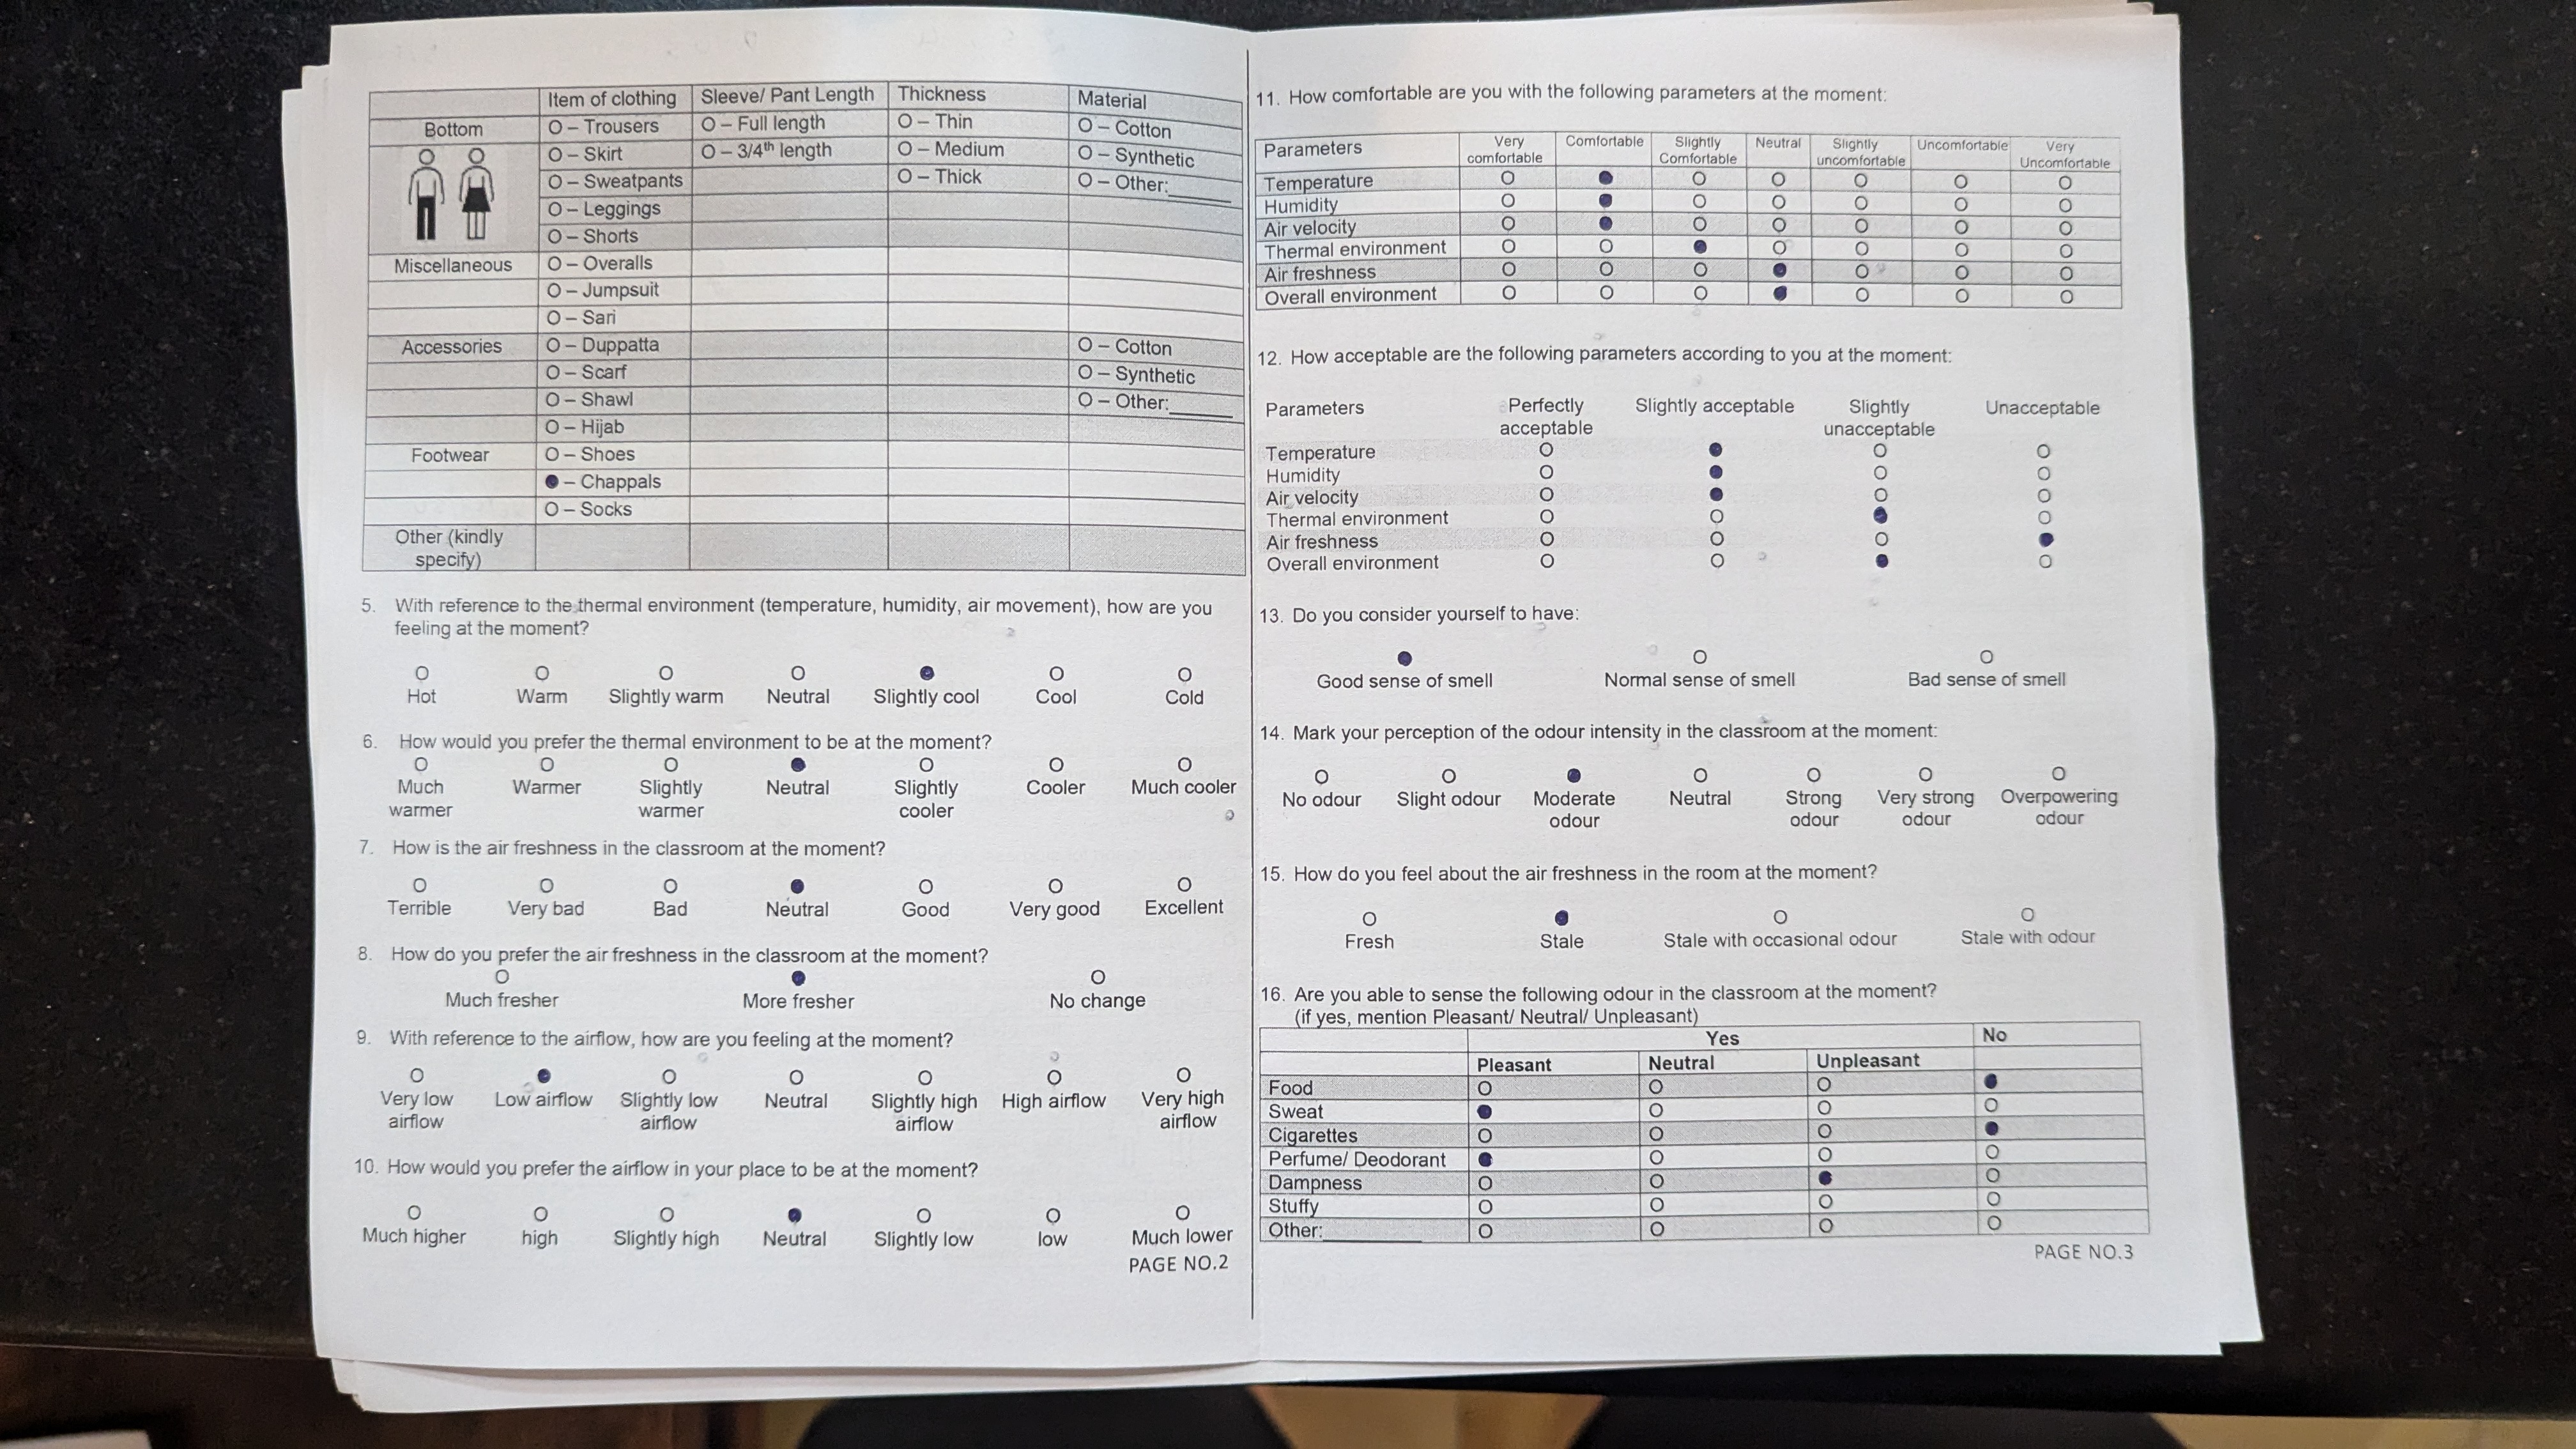 Item of clothing Sleeve/ Pant Length Thickness Material
Bottom O – Trousers O – Full length O – Thin O – Cotton
O – Skirt O – 3/4th length O – Medium O – Synthetic
O – Sweatpants O – Thick O – Other:______
O – Leggings
O – Shorts
Miscellaneous O – Overalls
O – Jumpsuit
O – Sari
Accessories O – Duppatta O – Cotton
O – Scarf O – Synthetic
O – Shawl O – Other:______
O – Hijab
Footwear O – Shoes
● – Chappals
O – Socks
Other (kindly
specify)
5. With reference to the thermal environment (temperature, humidity, air movement), how are you
feeling at the moment?
O O O O ● O O
Hot Warm Slightly warm Neutral Slightly cool Cool Cold
6. How would you prefer the thermal environment to be at the moment?
O O O ● O O O
Much Warmer Slightly Neutral Slightly Cooler Much cooler
warmer warmer cooler
7. How is the air freshness in the classroom at the moment?
O O O ● O O O
Terrible Very bad Bad Neutral Good Very good Excellent
8. How do you prefer the air freshness in the classroom at the moment?
O ● O
Much fresher More fresher No change
9. With reference to the airflow, how are you feeling at the moment?
O ● O O O O O
Very low Low airflow Slightly low Neutral Slightly high High airflow Very high
airflow airflow airflow airflow
10. How would you prefer the airflow in your place to be at the moment?
O O O ● O O O
Much higher high Slightly high Neutral Slightly low low Much lower
PAGE NO.2
11. How comfortable are you with the following parameters at the moment:
Parameters Very Comfortable Slightly Neutral Slightly Uncomfortable Very
comfortable Comfortable uncomfortable Uncomfortable
Temperature O ● O O O O O
Humidity O ● O O O O O
Air velocity O ● O O O O O
Thermal environment O O ● O O O O
Air freshness O O O ● O O O
Overall environment O O O ● O O O
12. How acceptable are the following parameters according to you at the moment:
Parameters Perfectly Slightly acceptable Slightly Unacceptable
acceptable unacceptable
Temperature O ● O O
Humidity O ● O O
Air velocity O ● O O
Thermal environment O O ● O
Air freshness O O O ●
Overall environment O O ● O
13. Do you consider yourself to have:
● O O
Good sense of smell Normal sense of smell Bad sense of smell
14. Mark your perception of the odour intensity in the classroom at the moment:
O O ● O O O O
No odour Slight odour Moderate Neutral Strong Very strong Overpowering
odour odour odour odour
15. How do you feel about the air freshness in the room at the moment?
O ● O O
Fresh Stale Stale with occasional odour Stale with odour
16. Are you able to sense the following odour in the classroom at the moment?
(if yes, mention Pleasant/ Neutral/ Unpleasant)
Yes No
Pleasant Neutral Unpleasant
Food O O O ●
Sweat ● O O O
Cigarettes O O O ●
Perfume/ Deodorant ● O O O
Dampness O O ● O
Stuffy O O O O
Other:_________ O O O O
PAGE NO.3